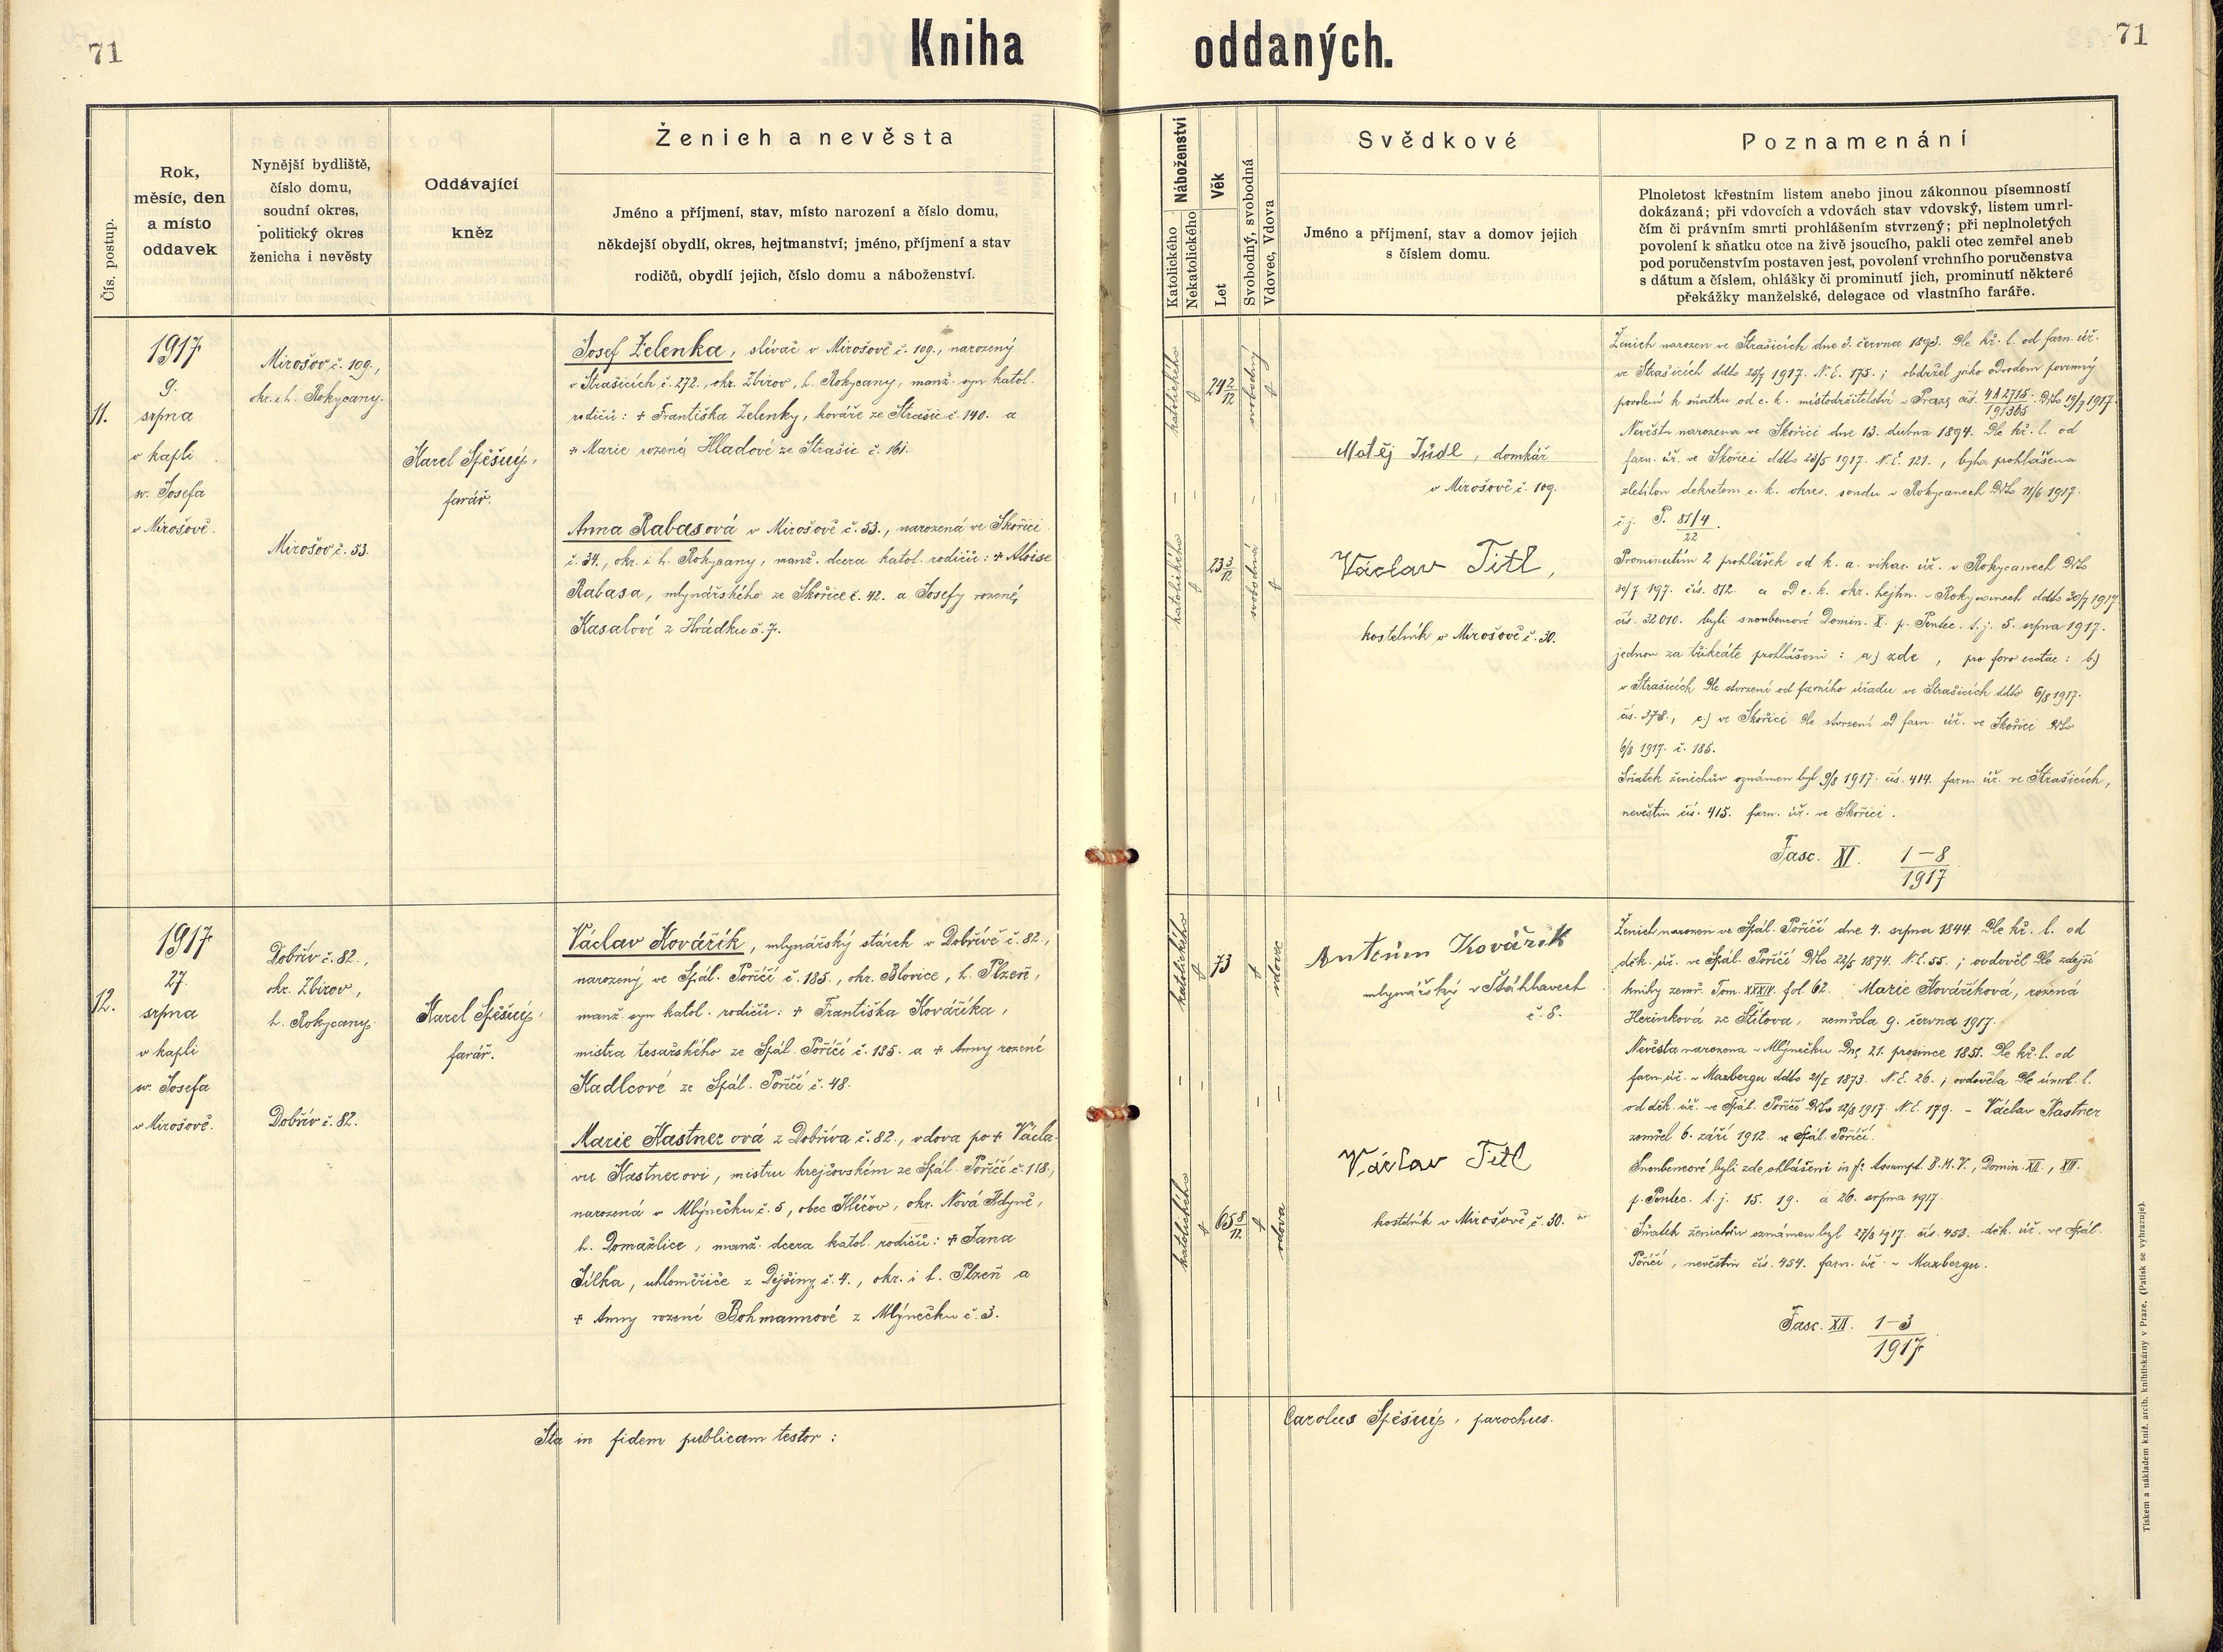 71
Kniha
oddaných.
71
Čís. postup.
Rok,
měsíc, den
a místo
oddavek
Nynější bydliště,
číslo domu,
soudní okres,
politický okres
ženicha i nevěsty
Oddávající
kněz
Ženich a nevěsta
Jméno a příjmení, stav, místo narození a číslo domu,
někdejší obydlí, okres, hejtmanství; jméno, příjmení a stav
rodičů, obydlí jejich, číslo domu a náboženství.
Náboženství
Katolického
Nekatolického
Věk
Let
Svobodný, svobodná
Vdovec, Vdova
Svědkové
Jméno a příjmení, stav a domov jejich
s číslem domu.
Poznamenání
Plnoletost křestním listem anebo jinou zákonnou písemností
dokázaná; při vdovcích a vdovách stav vdovský, listem umrl-
čím či právním smrti prohlášením stvrzený; při neplnoletých
povolení k sňatku otce na živě jsoucího, pakli otec zemřel aneb
pod poručenstvím postaven jest, povolení vrchního poručenstva
s dátum a číslem, ohlášky či prominutí jich, prominutí některé
překážky manželské, delegace od vlastního faráře.
11.
1917
9.
srpna
v kapli
sv. Josefa
v Mirošově.
Mirošov č. 109.,
okr. i h. Rokycany.
Mirošov č. 53.
Karel Spěšný,
farář.
Josef Zelenka, slévač v Mirošově č. 109., narozený
v Strašicích č. 272., okr. Zbirov, h. Rokycany, manž. syn katol.
rodičů: + Františka Zelenky, kováře ze Strašic č. 140. a
+ Marie rozené Hladové ze Strašic č. 161.
Anna Rabasová v Mirošově č. 53., narozená ve Skořici
č. 34., okr. i h. Rokycany, manž. dcera katol. rodičů: + Aloise
Rabasa, mlynářského ze Skořice č. 42. a Josefy rozené
Kasalové z Hrádku č. 7.
katolického
24 2/12
svobodný
katolického
23 3/12
svobodná
Matěj Jůdl, domkář
v Mirošově č. 109.
Václav Titl,
kostelník v Mirošově č. 30.
Ženich narozen ve Strašicích dne 3. června 1893. Dle kř. l. od farn. úř.
ve Strašicích ddto 25/7 1917. N. E. 175.; obdržel jako odvodem povinný
povolení k sňatku od c. k. místodržitelství v Praze čís. 4A 2715/191365 ddto 19/7 1917.
Nevěsta narozena ve Skořici dne 13. dubna 1894. Dle kř. l. od
farn. úř. ve Skořici ddto 23/5 1917. N. E. 121., byla prohlášena
zletilou dekretem c. k. okres. soudu v Rokycanech ddto 11/6 1917.
č. j. P. 81/4
22
Prominutím 2 prohlášek od k. a. vikar. úř. v Rokycanech ddto
30/7 197. čís. 812. a od c. k. okr. hejtm. v Rokycanech ddto 30/7 1917
čís. 32010. byli snoubencové Domin. X. p. Pentec. t. j. 5. srpna 1917.
jednou za třikráte prohlášeni: a) zde, pro foro b)
v Strašicích dle stvrzení od farního úřadu ve Strašicích ddto 6/8 1917.
čís. 378., c) ve Skořici dle stvrzení od farn. úř. ve Skořici ddto
6/8 1917. č. 185.
Sňatek ženichův oznámen byl 9/8 1917. čís. 414. farn. úř. ve Strašicích,
nevěstin čís. 415. farn. úř. ve Skořici.
Fasc. XI. 1–8
1917
12.
1917
27.
srpna
v kapli
sv. Josefa
v Mirošově.
Dobřív č. 82.,
okr. Zbirov,
h. Rokycany.
Dobřív č. 82.
Karel Spěšný,
farář.
Václav Kovářík, mlynářský stárek v Dobřívě č. 82.,
narozený ve Spál. Poříčí č. 185., okr. Blovice, h. Plzeň,
manž. syn katol. rodičů: + Františka Kováříka,
mistra tesařského ze Spál. Poříčí č. 185. a + Anny rozené
Kadlcové ze Spál. Poříčí č. 48.
Marie Kastnerová z Dobříva č. 82., vdova po + Václa-
vu Kastnerovi, mistru krejčovském ze Spál. Poříčí č. 118.,
narozená v Mlýnečku č. 5, obec Klíčov, okr. Nová Kdyně,
h. Domažlice, manž. dcera katol. rodičů: + Jana
Jílka, uhloměřiče z Dejšiny č. 4., okr. i h. Plzeň a
+ Anny rozené Bohmannové z Mlýnečku č. 3.
katolického
73
vdovec
katolického
65 8/12
vdova
Antonín Kovářík
mlynářský v Štáhlavech
č. 8.
Václav Titl
kostelník v Mirošově č. 30.
Ženich narozen ve Spál. Poříčí dne 4. srpna 1844. Dle kř. l. od
děk. úř. ve Spál. Poříčí ddto 22/5 1874. N. E. 55.; ovdověl dle zdejší
knihy zemř. Tom. XXXIV. fol. 62. Marie Kováříková, rozená
Herinková ze Štítova, zemřela 9. června 1917.
Nevěsta narozena v Mlýnečku dne 21. prosince 1851. Dle kř. l. od
farn. úř. v Maxbergu ddto 21/I 1873. N. E. 26.; ovdověla dle úmrl. l.
od děk. úř. ve Spál. Poříčí ddto 12/8 1917. N. E. 179. – Václav Kastner
zemřel 6. září 1912. ve Spál. Poříčí.
Snoubencové byli zde ohlášeni in fo Assumpt. B. M. V., Domin. XII., XIII.
p. Pentec. t. j. 15. 19. a 26. srpna 1917.
Sňatek ženichův oznámen byl 27/8 1917. čís. 453. děk. úř. ve Spál.
Poříčí, nevěstin čís. 454. farn. úř. v Maxbergu.
Fasc. XII. 1–3
1917
Ita in fidem publicam testor:
Carolus Spěšný, parochus.
Tiskem a nákladem kníž. arcib. knihtiskárny v Praze. (Patisk se vyhrazuje).